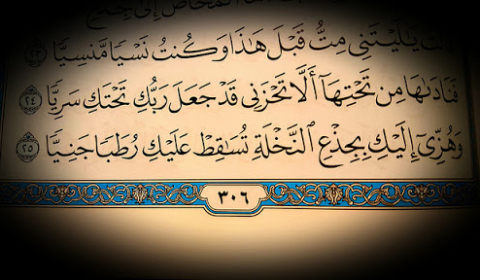 المخاض إلى جذع
قَالَتْ يَٰلَيْتَنِى مِتُّ قَبْلَ هَٰذَا وَكُنتُ نَسْيًا مَّنسِيًّا ٢٣
فَنَادَىٰهَا مِن تَحْتِهَآ أَلَّا تَحْزَنِى قَدْ جَعَلَ رَبُّكِ تَحْتَكِ سَرِيًّا ٢٤
وَهُزِّىٓ إِلَيْكِ بِجِذْعِ ٱلنَّخْلَةِ تُسَٰقِطْ عَلَيْكِ رُطَبًا جَنِيًّا ٢٥
٣٠٦